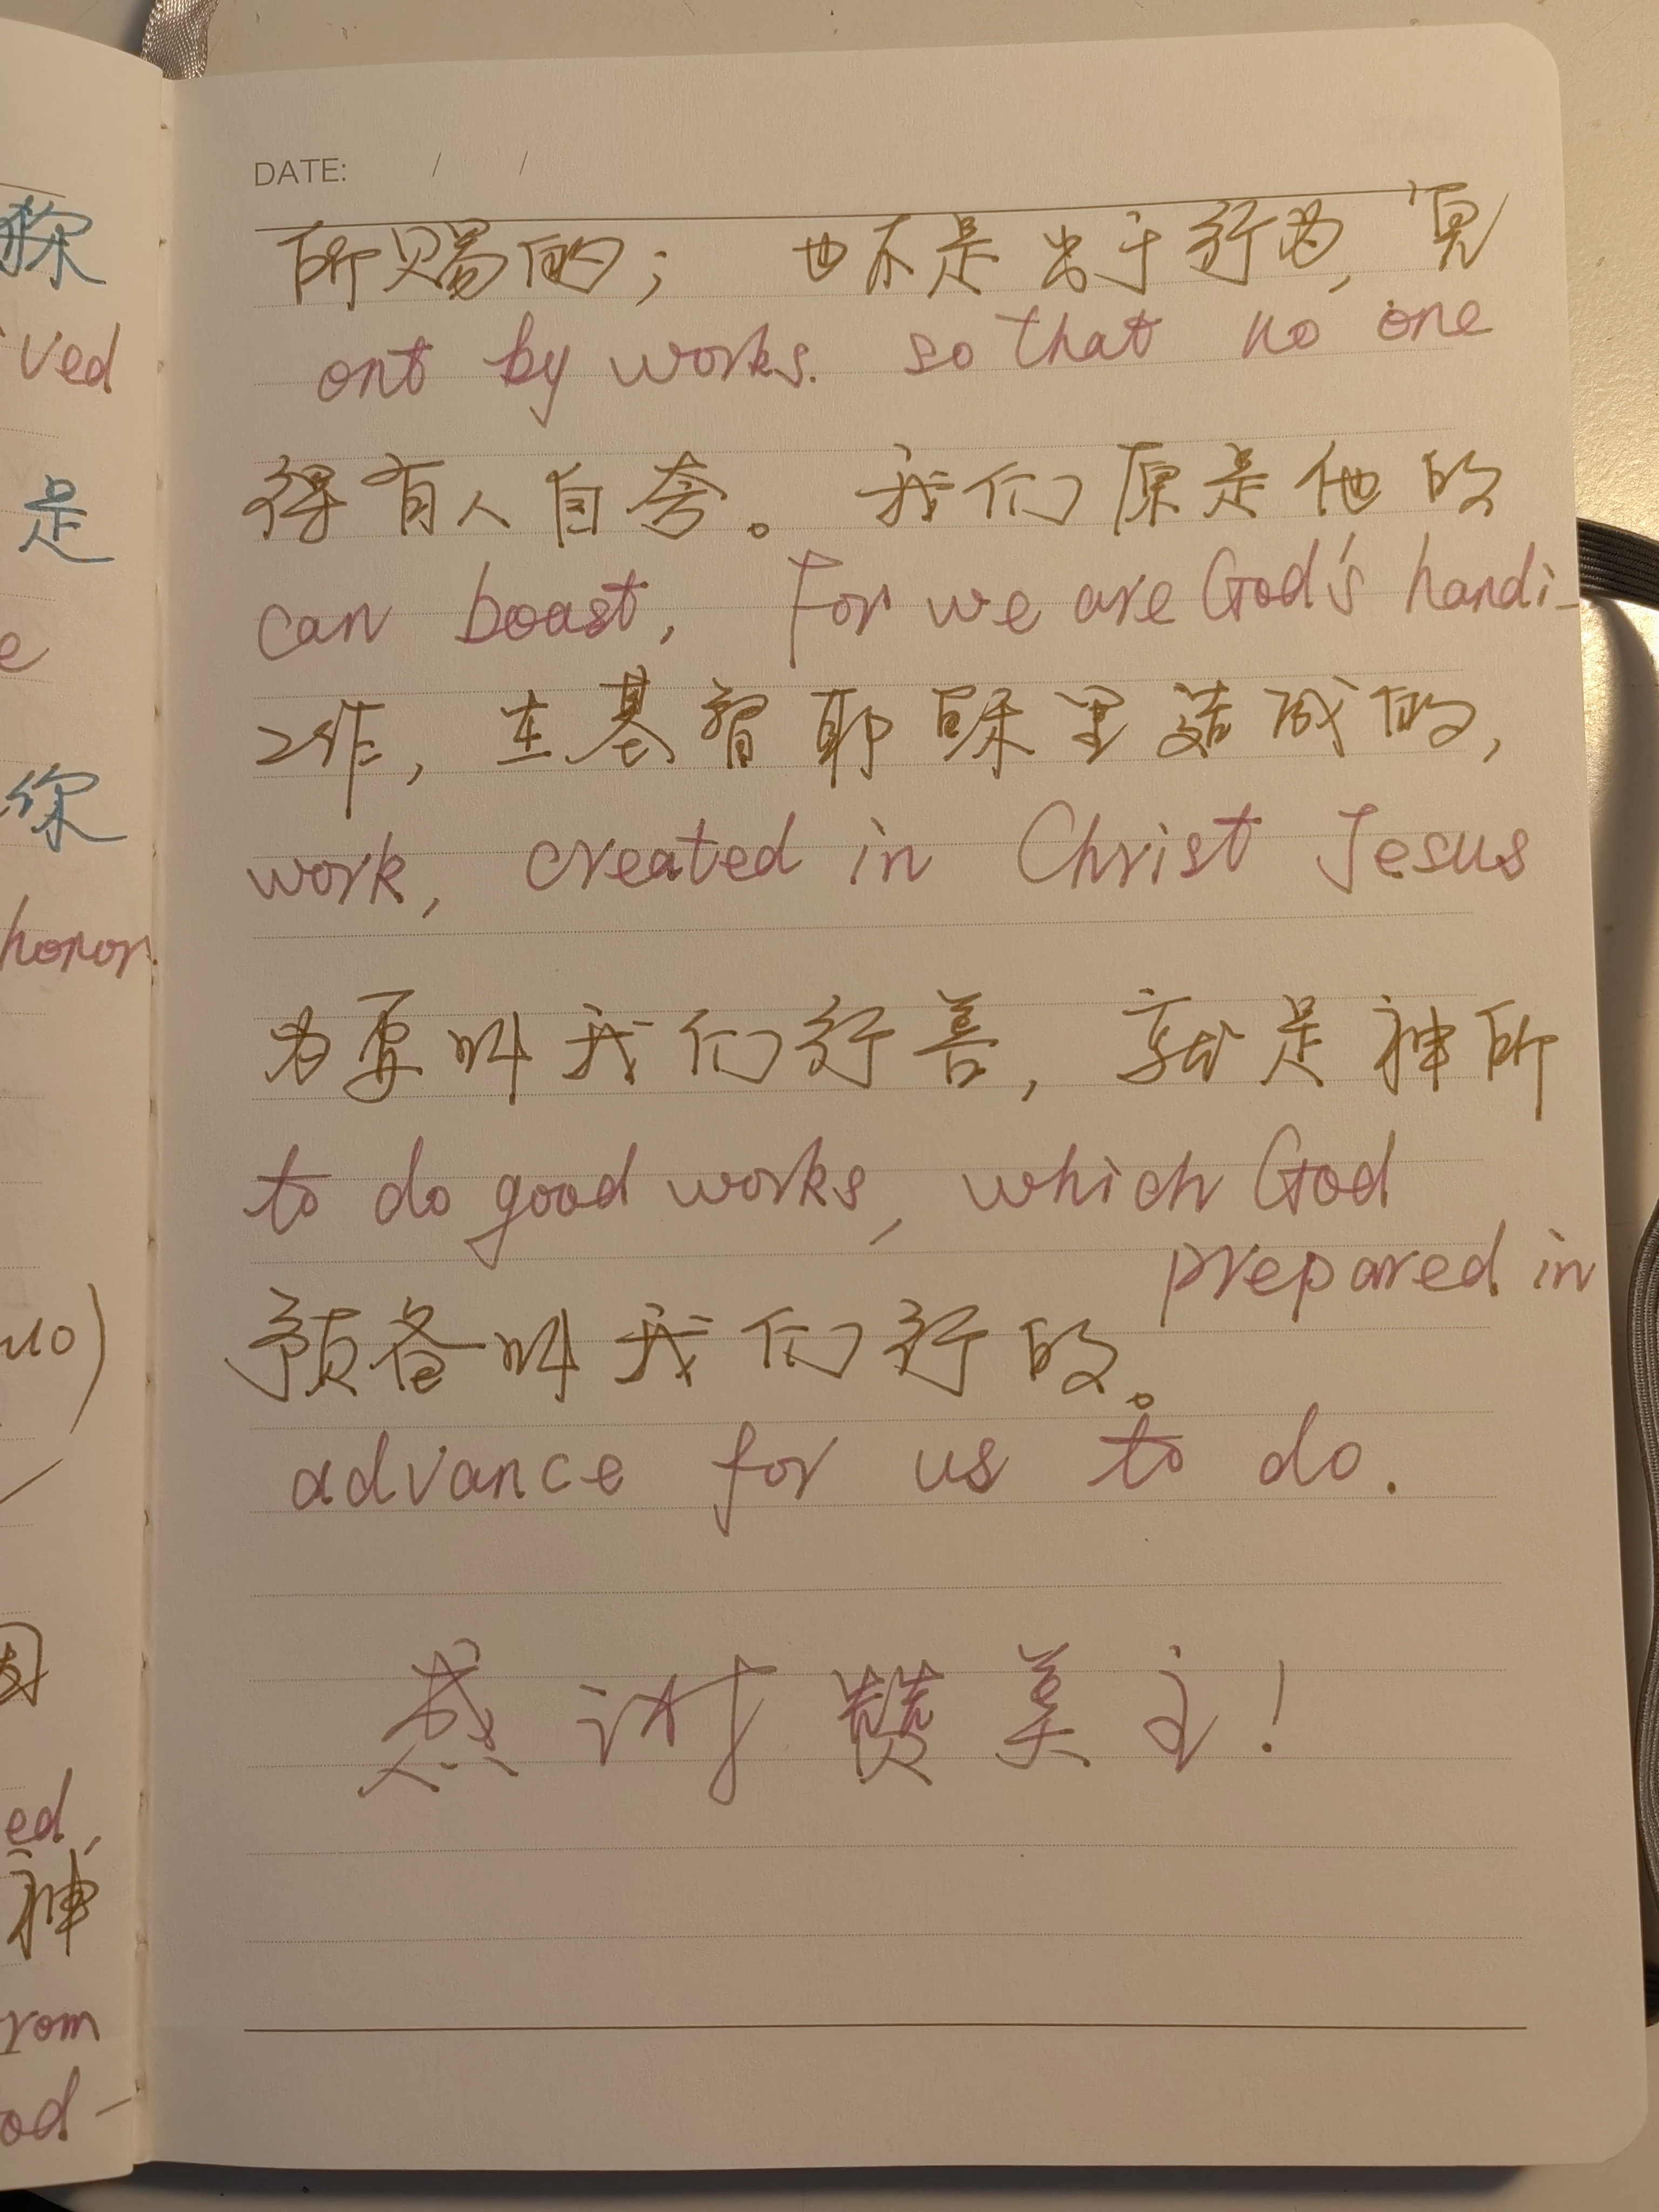 DATE: / /
所赐的； 也不是出于行为, 免
ont by works. so that no one
得有人自夸。 我们原是他的
can boast, For we are God's handi-
工作, 在基督耶稣里造成的,
work, created in Christ Jesus
为要叫我们行善, 就是神所
to do good works, which God
prepared in
预备叫我们行的。
advance for us to do.
感谢赞美主!
ved
是
e
你
honor.
ed,
神
rom
od-